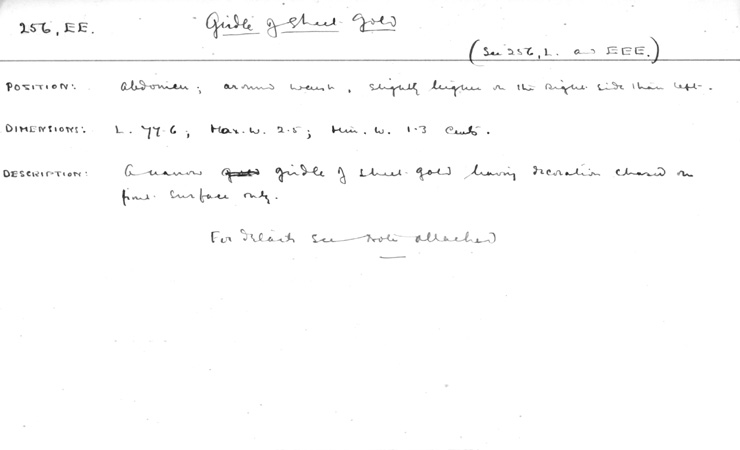 256, EE.
Girdle of Sheet Gold
(See 256, L. and EEE.)
POSITION: Abdomen; around waist, slightly higher on the right side than left.
DIMENSIONS: L. 77.6; Max. W. 2.5; Min. W. 1.3 Cents.
DESCRIPTION: A narrow girdle of sheet gold having decoration chased on
front surface only.
For details see note attached